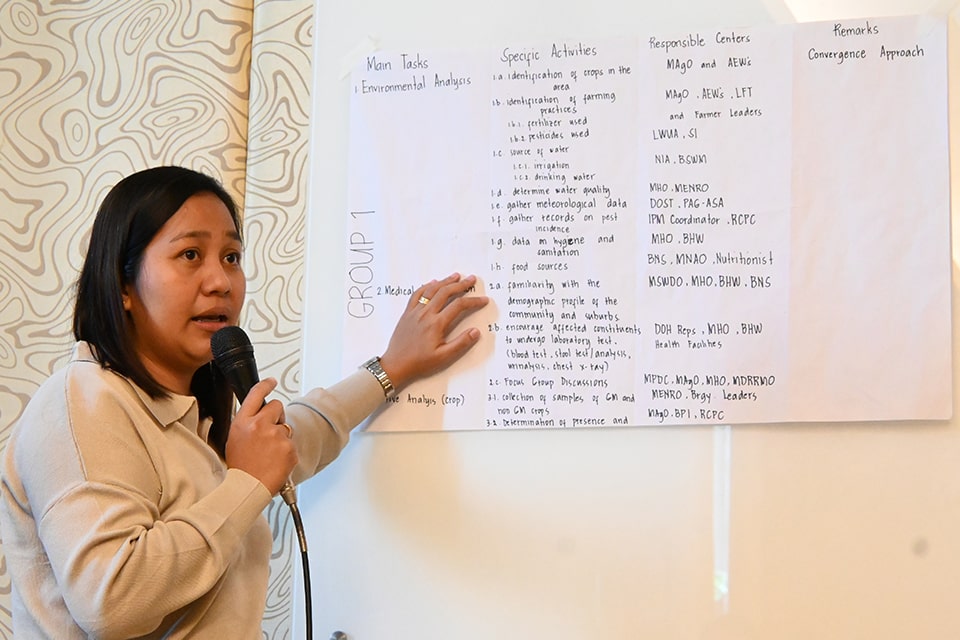 GROUP 1
Main Tasks
1. Environmental Analysis
2. Medical
Analysis (crop)
Specific Activities
1.a. identification of crops in the
area
1.b. identification of farming
practices
1.b.1. fertilizer used
1.b.2. pesticides used
1.c. source of water
1.c.1. irrigation
1.c.2. drinking water
1.d. determine water quality
1.e. gather meteorological data
1.f. gather records on pest
incidence
1.g. data on hygene and
sanitation
1.h. food sources
2.a. familiarity with the
demographic profile of the
community and suburbs
2.b. encourage affected constituents
to undergo laboratory test.
(blood test, stool test/analysis,
urinalysis, chest x-ray)
2.c. Focus Group Discussions
3.1. collection of samples of GM and
non GM crops
3.2. Determination of presence and
Responsible Centers
MAgO and AEW's
MAgO, AEW's, LFT
and Farmer Leaders
LWUA, SI
NIA, BSWM
MHO, MENRO
DOST, PAG-ASA
IPM Coordinator, RCPC
MHO, BHW
BNS, MNAO, Nutritionist
MSWDO, MHO, BHW, BNS
DOH Reps, MHO, BHW
Health Facilities
MPDC, MAgO, MHO, MDRRMO
MENRO, Brgy. Leaders
MAgO, BPI, RCPC
Remarks
Convergence Approach